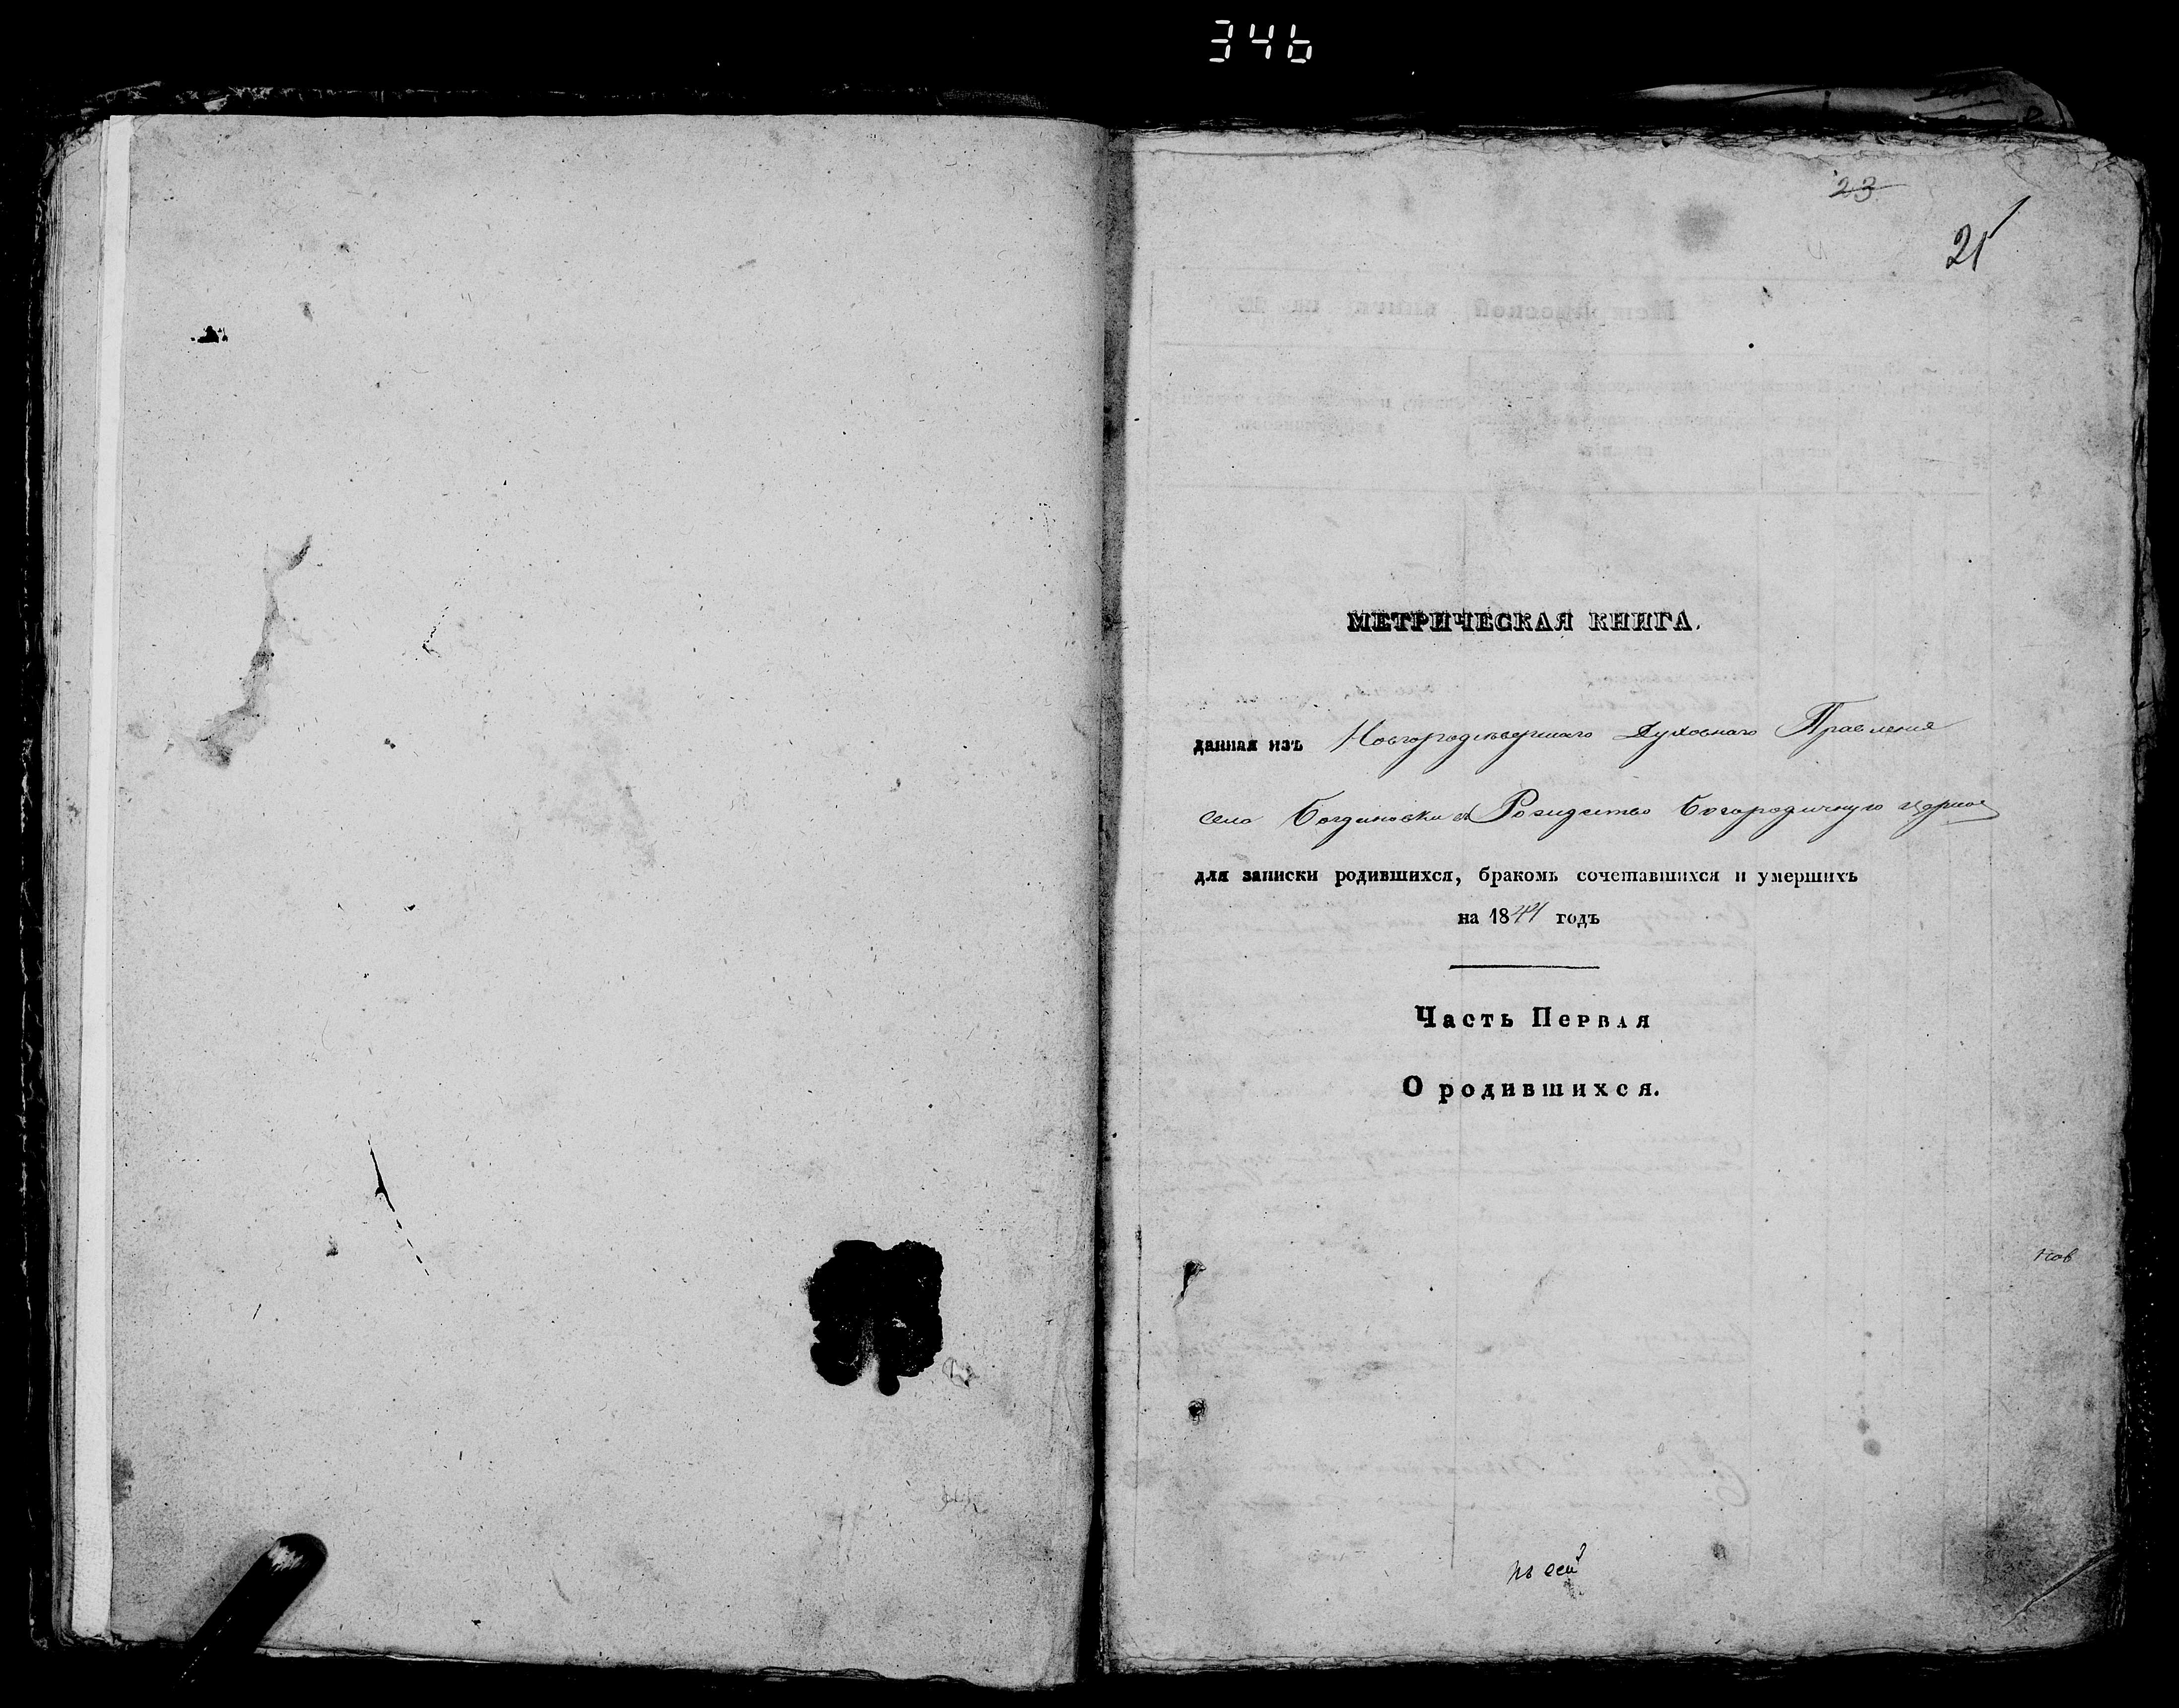 346
23
21
МЕТРИЧЕСКАЯ КНИГА.
данная изъ Новгородсѣверскаго Духовнаго Правленія
села Богдановки въ Рождество Богородичную церковь
для записки родившихся, бракомъ сочетавшихся и умершихъ
на 1841 годъ
Часть Первая
О родившихся.
Нов